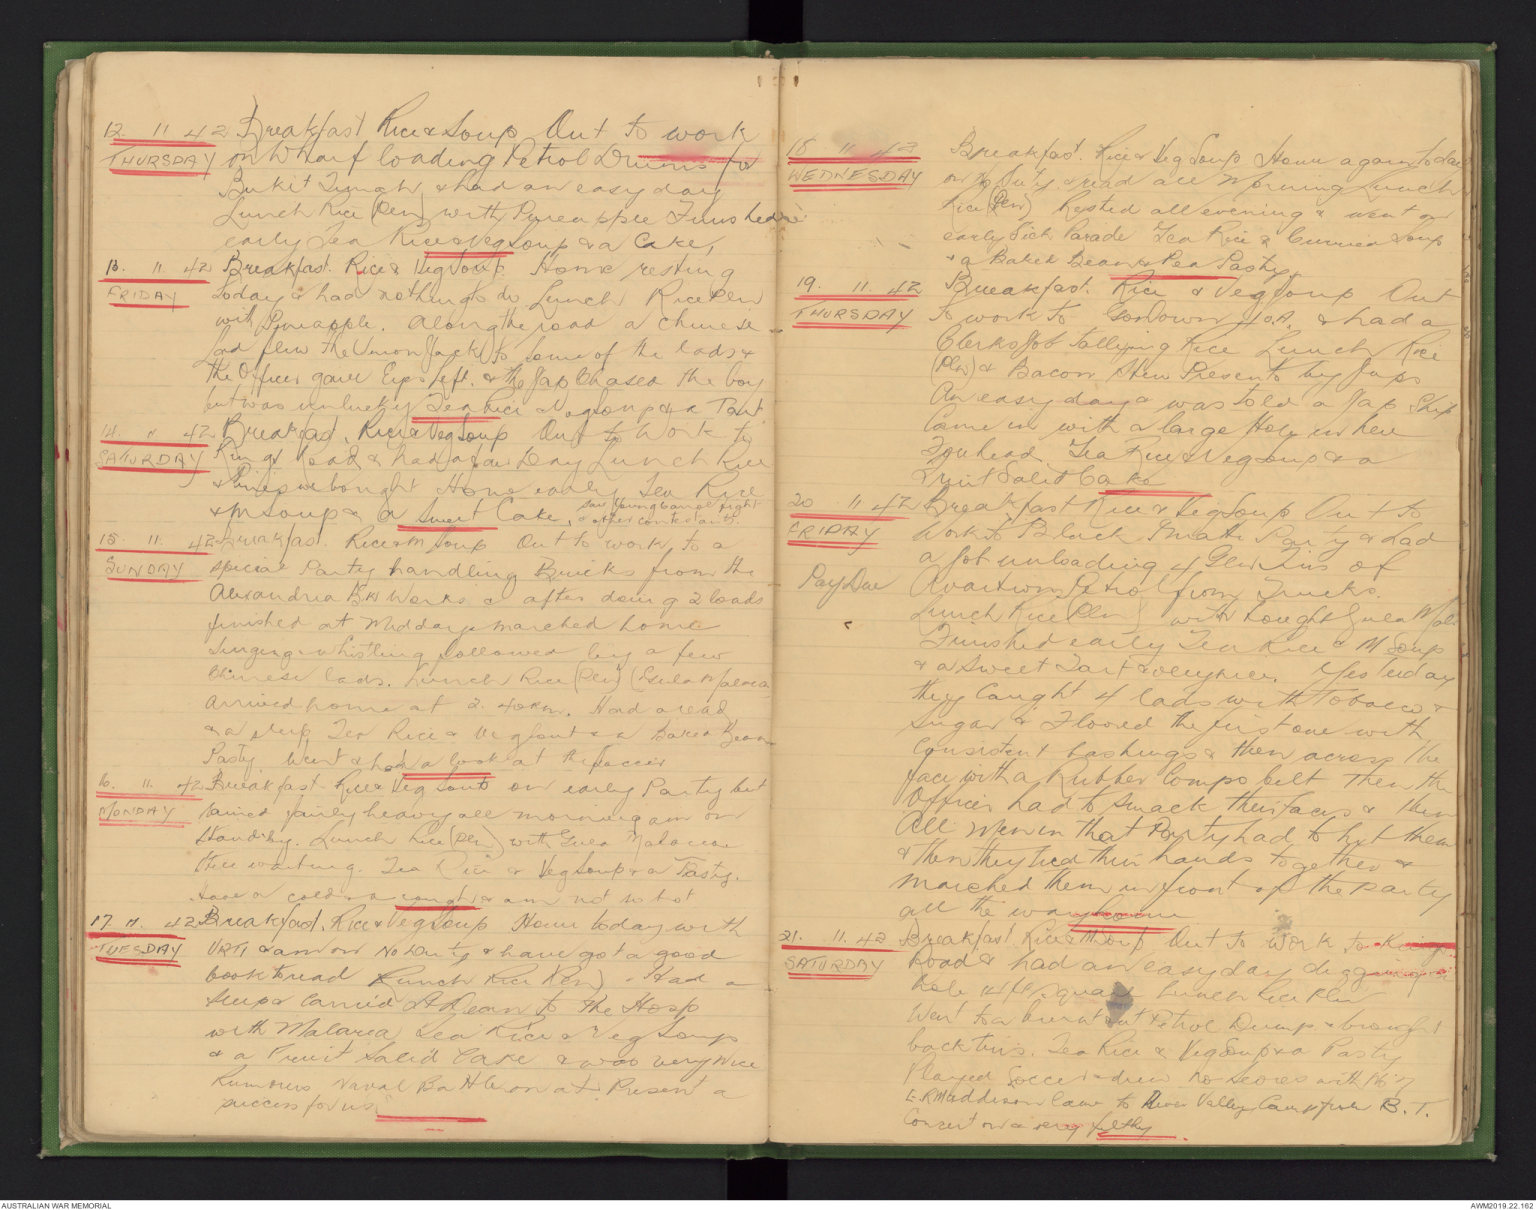 12. 11 42 Breakfast Rice & Soup Out to work
THURSDAY on Wharf loading Petrol Drums for
Bukit Timah & had an easy day
Lunch Rice (Plen) with Pineapple Finished
early Tea Rice & Veg Soup & a Cake,
13. 11. 42 Breakfast. Rice & Veg Soup Home resting
FRIDAY today & had nothing to do Lunch Rice Plen
with Pineapple. Along the road a Chinese
lad flew the Union Jack to some of the lads &
the Officer gave Eyes Left. & the Jap Chased the boy
but was unlucky Tea Rice & Veg Soup & a Tart
14. 11. 42. Breakfast. Rice & Veg Soup Out to Work to
SATURDAY Kings Road & had a fair Day Lunch Rice
& Pines we bought Home early Tea Rice
& M Soup & a Sweet Cake, Saw Young fight
& other
15. 11. 42 Breakfast. Rice & M Soup Out to work to a
SUNDAY special Party handling Bricks from the
Alexandria Bk Works & after doing 2 loads
finished at Midday & marched home
singing & whistling followed by a few
Chinese lads. Lunch Rice (Plen) (Gula Malacca
Arrived home at 2. Had a read
& a sleep Tea Rice & Veg Soup & a Baked Bean
Pasty Went & had a look at the Soccer
16. 11. 42. Breakfast Rice & Veg Soup on early Party but
MONDAY rained fairly heavy all morning am on
Standby. Lunch Rice (Plen) with Gula Malacca.
Still waiting. Tea Rice & Veg Soup & a Pasty.
Have a cold & a cough & am not so hot
17. 11. 42 Breakfast. Rice & Veg Soup Home today with
TUESDAY URTI & am on No Duty & have got a good
book to read Lunch Rice Plen) Had a
sleep & carried to the Hosp
with Malaria Tea Rice & Veg Soup
& a Fruit Salid Cake & was very nice
Rumours Naval Battle on at Present a
success for us
18 11 42 Breakfast Rice & Veg Soup Home again today
WEDNESDAY on No Duty & read all Morning Lunch
Rice (Plen) Rested all evening & went on
early Sick Parade Tea Rice & Curried Soup
& a Baked Bean & Pea Pasty
19. 11. 42 Breakfast. Rice & Veg Soup Out
THURSDAY to work to GoDown & had a
Clerks Job tallying Rice Lunch Rice
(Plen) & Bacon Stew Present by Japs
An easy day & was told a Jap Ship
Came in with a large Hole in her
Forhead Tea Rice & Veg Soup & a
Fruit Salid Cake
20 11 42 Breakfast Rice & Veg Soup Out to
FRIDAY Work to Black Party & had
a Job unloading 4 Glln Tins of
Pay Due Aviation Petrol from Trucks.
Lunch Rice (Plen) with bought Gula Mala
Finished early Tea Rice & M Soup
& a Sweet Tart & very nice. Yesterday
they Caught 4 lads with Tobacco &
Sugar & Floored the first one with
Consistent bashings & then across the
face with a Rubber Compo belt Then the
Officer had to Smack their faces & then
All Men in that Party had to hit them
& then they tied their hands together &
Marched them in front of the Party
all the way home
21. 11. 42 Breakfast. Rice & Out to Work to Kings
SATURDAY Road & had an easy day digging a
hole square Lunch Rice Plen
Went to a burnt out Petrol Dump & brought
back tins. Tea Rice & Veg Soup & a Pasty
Played Soccer & drew no scores with
Maddison Came to River Valley Camp from B. T.
Concert on a very filthy
AUSTRALIAN WAR MEMORIAL
AWM2019.22.162